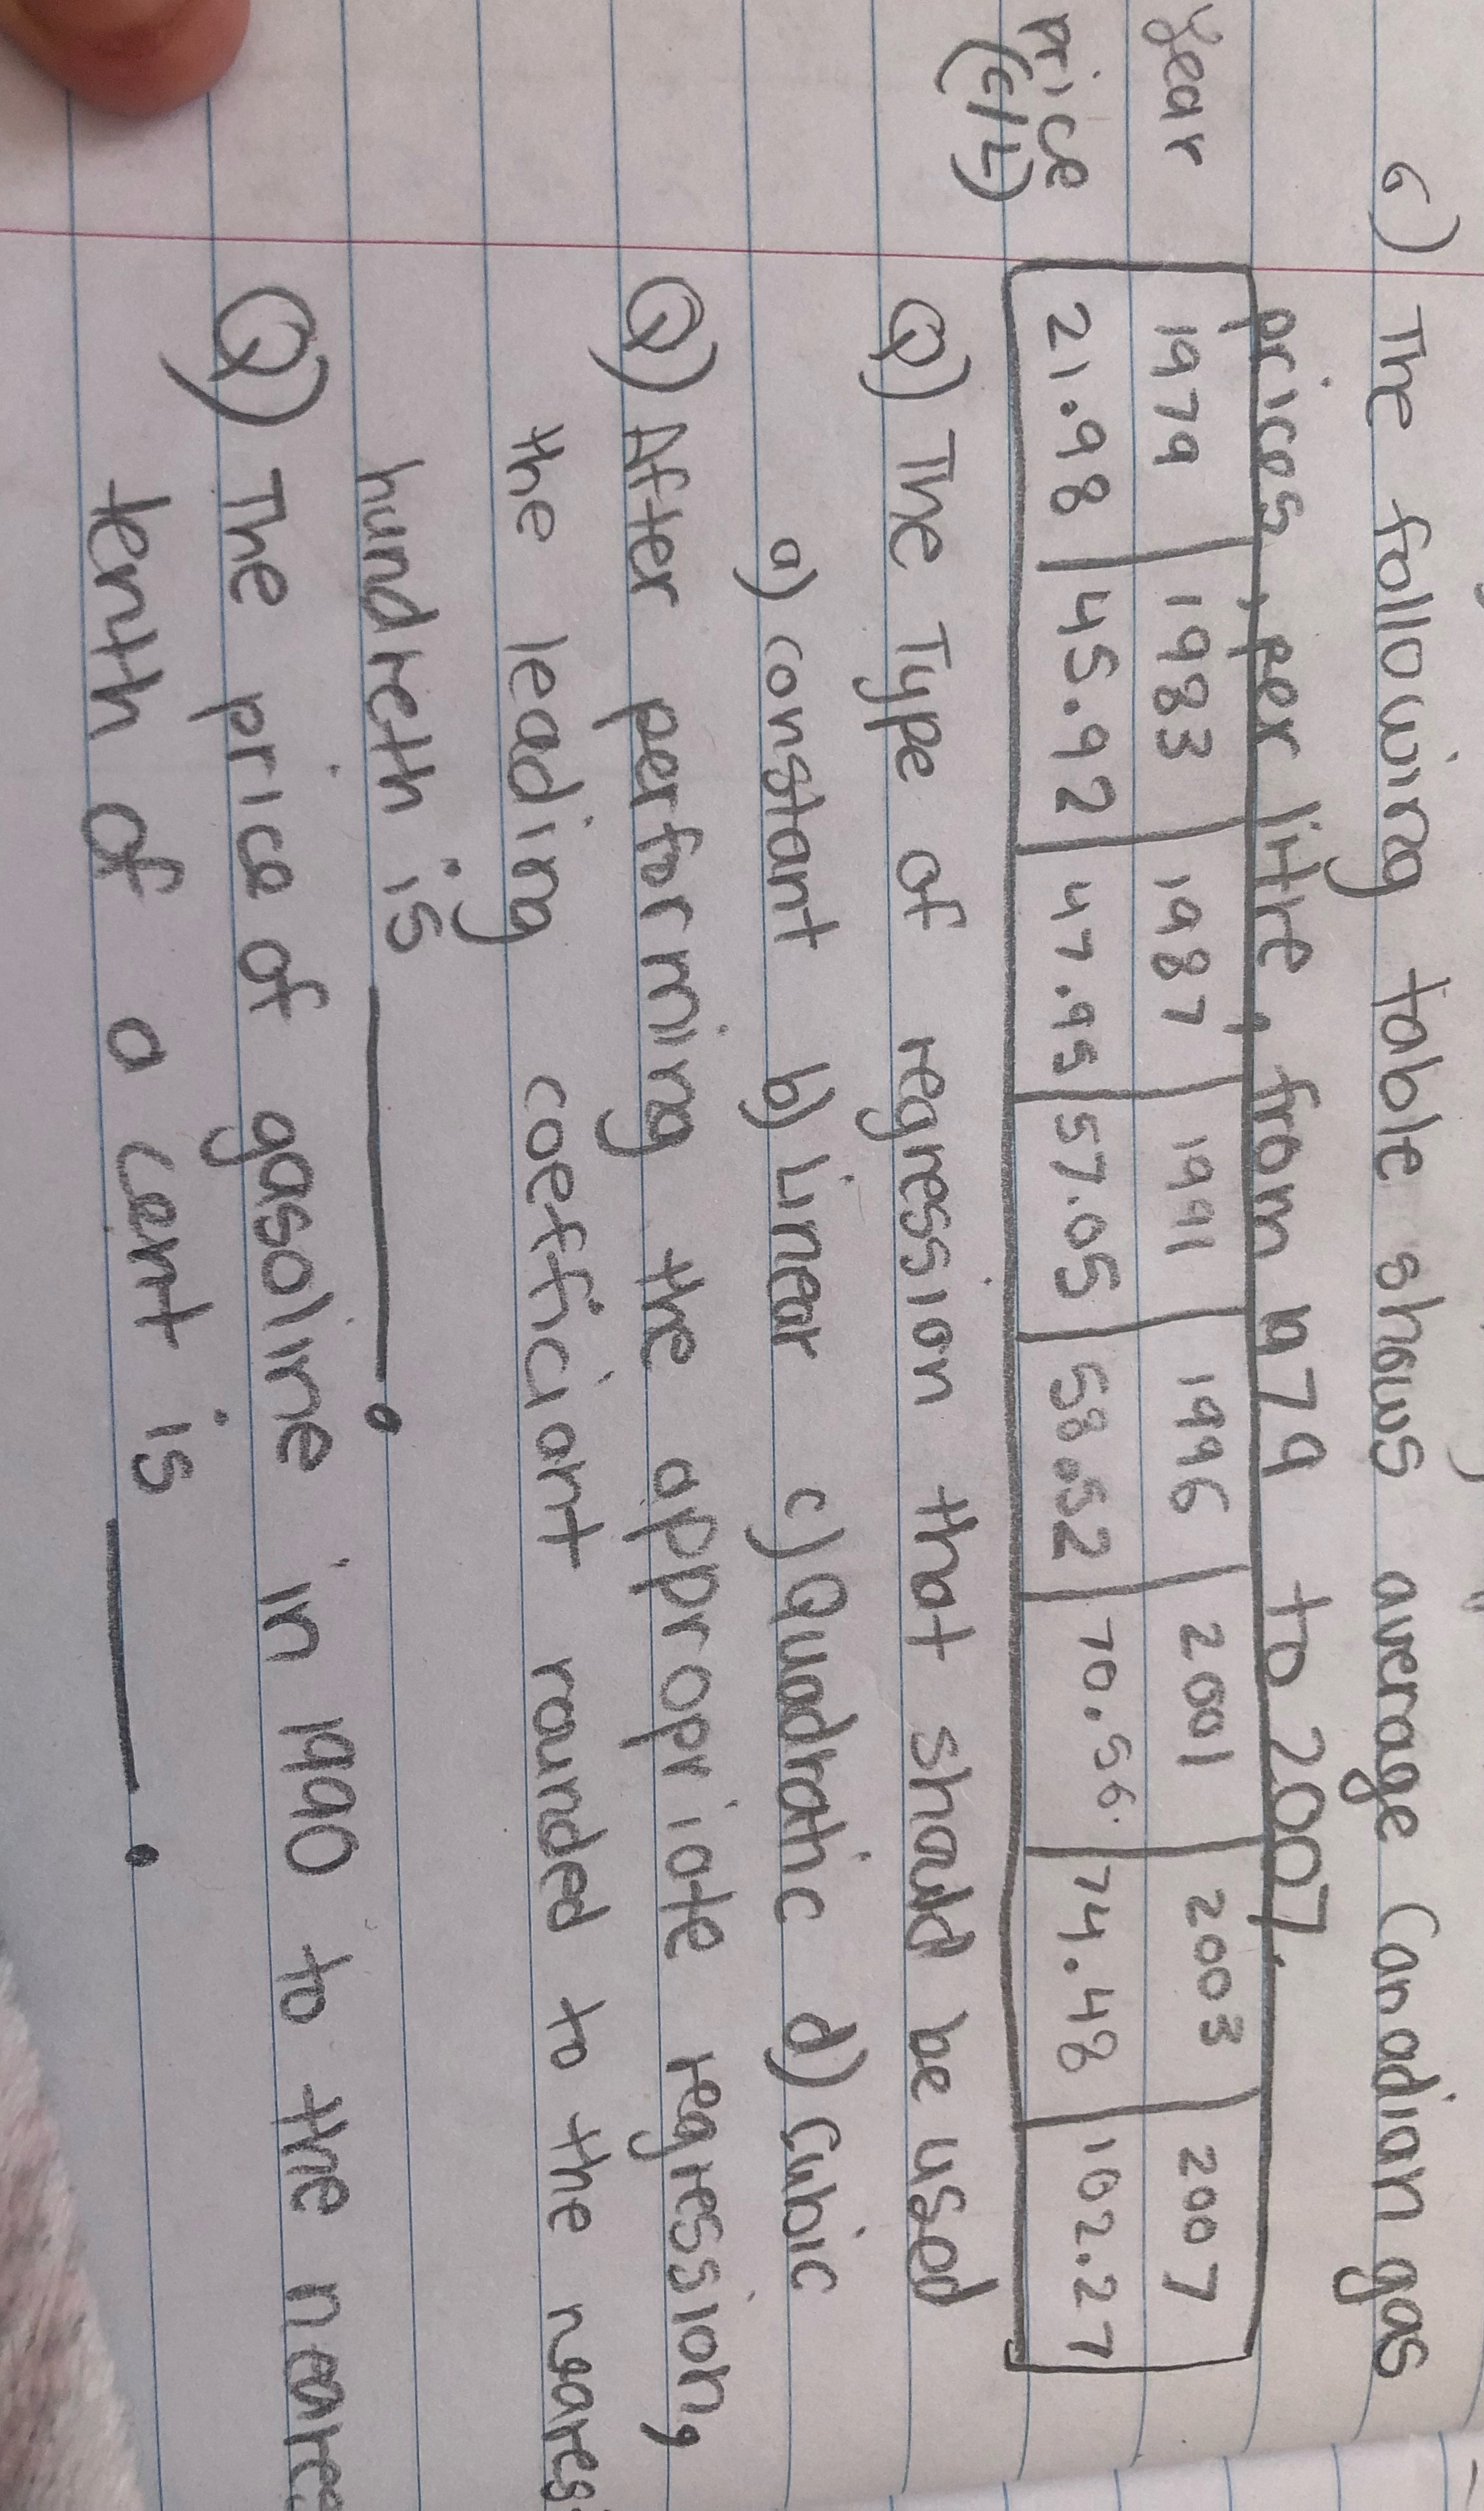 6) The following table shows average Canadian gas
prices, per litre, from 1979 to 2007.
Year 1979 1983 1987 1991 1996 2001 2003 2007
Price (¢/L) 21.98 45.92 47.95 57.05 58.52 70.56 74.48 102.27
Q) The Type of regression that should be used
a) constant b) Linear c) Quadratic d) Cubic
Q) After performing the appropriate regression,
the leading coefficiant rounded to the neares
hundreth is
Q) The price of gasoline in 1990 to the neares
tenth of a cent is